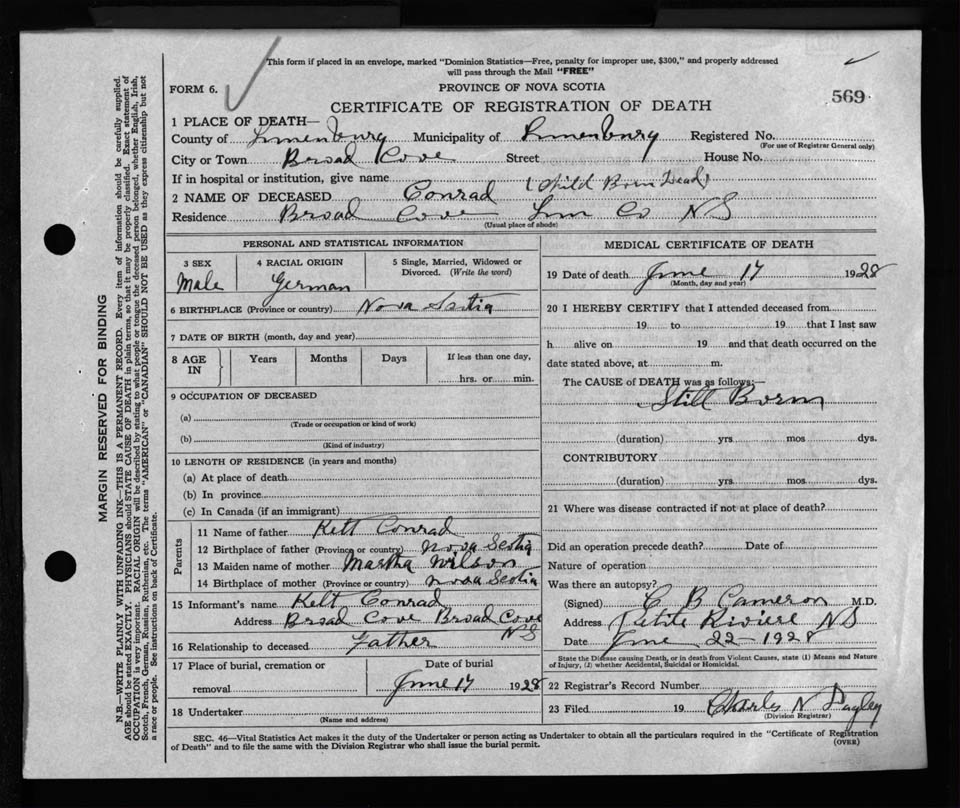 This form if placed in an envelope, marked "Dominion Statistics—Free, penalty for improper use, $300," and properly addressed
will pass through the Mail "FREE"
FORM 6.
PROVINCE OF NOVA SCOTIA
569
CERTIFICATE OF REGISTRATION OF DEATH
1 PLACE OF DEATH—
County of Lunenburg Municipality of Lunenburg Registered No.
(For use of Registrar General only)
City or Town Broad Cove Street House No.
If in hospital or institution, give name
2 NAME OF DECEASED Conrad (Child Born Dead)
Residence Broad Cove Lun Co NS
(Usual place of abode)
PERSONAL AND STATISTICAL INFORMATION
3 SEX 4 RACIAL ORIGIN 5 Single, Married, Widowed or
Divorced. (Write the word)
Male German
6 BIRTHPLACE (Province or country) Nova Scotia
7 DATE OF BIRTH (month, day and year)
8 AGE IN Years Months Days If less than one day,
hrs. or min.
9 OCCUPATION OF DECEASED
(a)
(Trade or occupation or kind of work)
(b)
(Kind of industry)
10 LENGTH OF RESIDENCE (in years and months)
(a) At place of death
(b) In province
(c) In Canada (if an immigrant)
Parents
11 Name of father Kelt Conrad
12 Birthplace of father (Province or country) Nova Scotia
13 Maiden name of mother Martha Wilson
14 Birthplace of mother (Province or country) Nova Scotia
15 Informant's name Kelt Conrad
Address Broad Cove Broad Cove
NS
16 Relationship to deceased Father
17 Place of burial, cremation or Date of burial
removal June 17 1928
18 Undertaker
(Name and address)
MEDICAL CERTIFICATE OF DEATH
19 Date of death June 17 1928
(Month, day and year)
20 I HEREBY CERTIFY that I attended deceased from
19 to 19 that I last saw
h alive on 19 and that death occurred on the
date stated above, at m.
The CAUSE OF DEATH was as follows:—
Still Born
(duration) yrs. mos dys.
CONTRIBUTORY
(duration) yrs mos dys.
21 Where was disease contracted if not at place of death?
Did an operation precede death? Date of
Nature of operation
Was there an autopsy?
(Signed) C B Cameron M.D.
Address Petite Riviere NS
Date June 22 - 1928
State the Disease causing Death, or in death from Violent Causes, state (1) Means and Nature
of Injury, (2) whether Accidental, Suicidal or Homicidal.
22 Registrar's Record Number
23 Filed 19 Charles N Pagley
(Division Registrar)
SEC. 46—Vital Statistics Act makes it the duty of the Undertaker or person acting as Undertaker to obtain all the particulars required in the "Certificate of Registration
of Death" and to file the same with the Division Registrar who shall issue the burial permit.
(OVER)
MARGIN RESERVED FOR BINDING
N.B.—WRITE PLAINLY WITH UNFADING INK—THIS IS A PERMANENT RECORD. Every item of information should be carefully supplied.
AGE should be stated EXACTLY. PHYSICIANS should STATE CAUSE OF DEATH in plain terms, so that it may be properly classified. Exact statement of
OCCUPATION is very important. RACIAL ORIGIN will be described by stating to what people or tongue the deceased person belonged, whether English, Irish,
Scotch, French, German, Russian, Ruthenian, etc. The terms "AMERICAN" or "CANADIAN" SHOULD NOT BE USED as they express citizenship but not
a race or people. See instructions on back of Certificate.